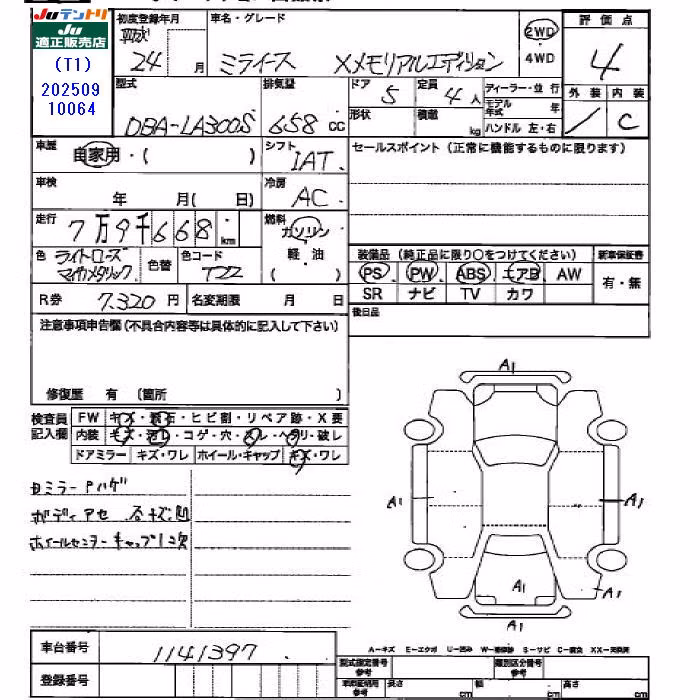 Juテントリ
Ju
適正販売店
(T1)
202509
10064
初度登録年月
平成
24 月
車名・グレード
ミライース Xメモリアルエディション
2WD
4WD
評価点
4
外装 内装
/ C
型式
DBA-LA300S
排気量
658 cc
ドア
5
形状
定員
4 人
積載
kg
ディーラー・並行
モデル年式 年
ハンドル 左・右
車歴
自家用・( )
シフト
IAT
セールスポイント(正常に機能するものに限ります)
車検
年 月( 日)
冷房
AC
走行
7万9千668 km
燃料
ガソリン
軽・油
( )
色 ライトローズマイカメタリック
色替
色コード
T22
装備品(純正品に限り○をつけてください)
新車保証書
有・無
PS PW ABS エアB AW
SR ナビ TV カワ
R券 7.320 円
名変期限 月 日
後日品
注意事項申告欄(不具合内容等は具体的に記入して下さい)
修復歴 有 (箇所 )
検査員
記入欄
FW キズ・飛石・ヒビ割・リペア跡・X要
内装 キズ・汚レ・コゲ・穴・スレ・ヘタリ・破レ
ドアミラー キズ・ワレ ホイール・キャップ キズ・ワレ
日ミラーPハゲ
ボディアセ 小キズ凹
ホイールセンターキャップ1欠
A1
A1
A1
A1
A1
車台番号
1141397
登録番号
A-キズ E-エクボ U-凹み W-補修跡 S-サビ C-腐食 XX-交換済
型式指定番号
参考
類別区分番号
参考
車両証明用
参考
長さ cm
幅 cm
高さ cm